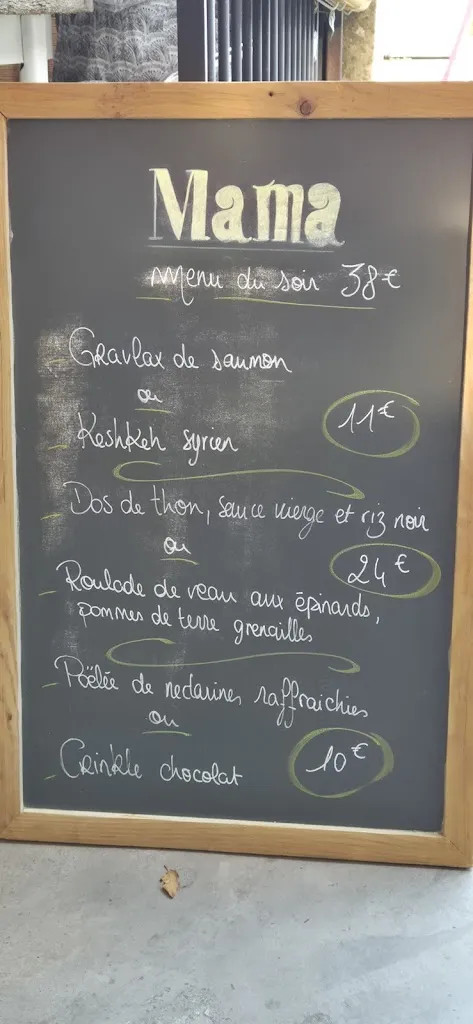 Mama
Menu du soir 38€
Gravlax de saumon
ou
11€
- Keshkeh syrien
- Dos de thon, sauce vierge et riz noir
ou
24€
- Roulade de veau aux épinards,
pommes de terre grenailles
- Poëlée de nectarines raffraichies
ou
10€
- Crinkle chocolat